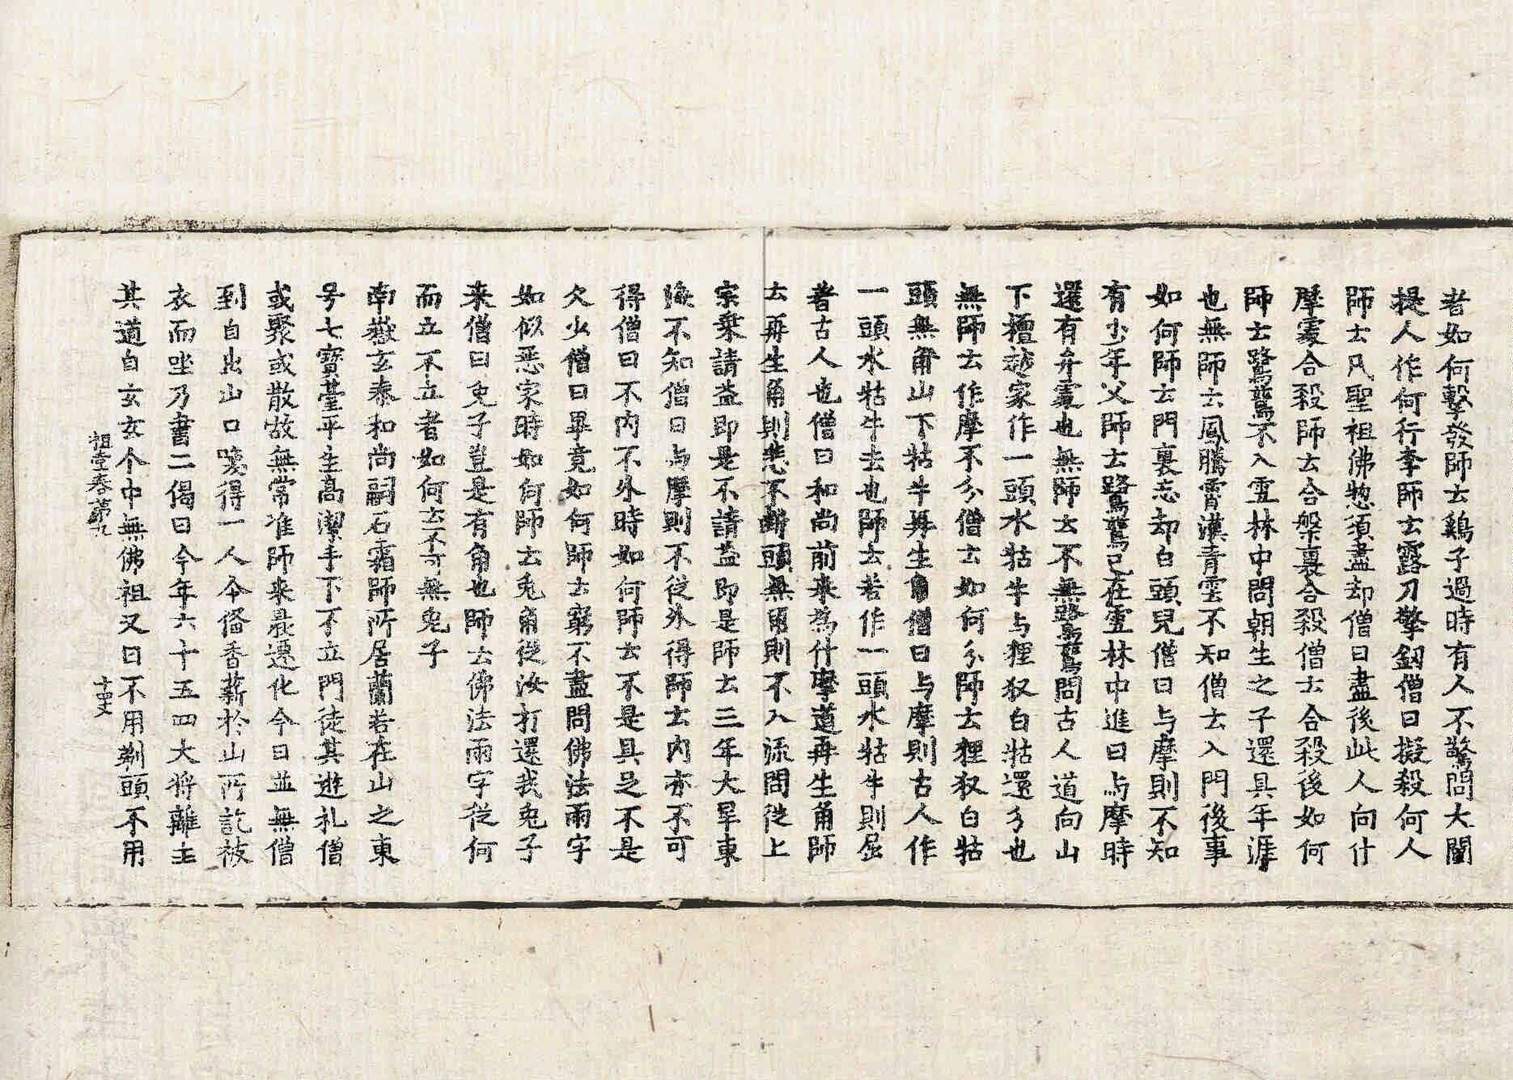 者如何擊發師云鷄子過時有人不驚問大闡
提人作何行李師云露刀擎釼僧曰擬殺何人
師云凡聖祖佛惣湏盡却僧曰盡後此人向什
摩處合殺師云合槃裏合殺僧云合殺後如何
師云鷺鷥不入雲林中問朝生之子還具年涯
也無師云鳳騰霄漢青雲不知僧云入門後事
如何師云門裏忘却白頭兒僧曰与摩則不知
有少年父師云鷺鷥已在雲林中進曰与摩時
還有弁處也無師云不無鷺鷥問古人道向山
下檀越家作一頭水牯牛与狸奴白牯還分也
無師云作摩不分僧云如何分師云狸奴白牯
頭無角山下牯牛再生角僧曰与摩則古人作
一頭水牯牛去也師云若作一頭水牯牛則屈
著古人也僧曰和尚前来為什摩道再生角師
云再生角則悲不斷頭無角則不入流問從上
宗乘請益即是不請益即是師云三年大旱東
海不知僧曰与摩則不從外得師云內亦不可
得僧曰不內不外時如何師云不是具足不是
欠少僧曰畢竟如何師云窮不盡問佛法兩字
如似惡家時如何師云兎角從汝打還我兎子
来僧曰兎子豈是有角也師云佛法兩字從何
而立不立者如何云不可無兎子
南嶽玄泰和尚嗣石霜師所居蘭若在山之東
号七寶臺平生高潔手下不立門徒其遊礼僧
或聚或散故無常准師来晨遷化今日並無僧
到自出山口喚得一人令俻香薪於山所訖被
衣而坐乃書二偈曰今年六十五四大将離主
其道自玄玄个中無佛祖又曰不用剃頭不用
祖堂卷第九
十四丈